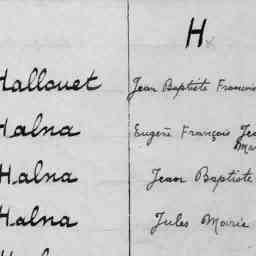 H
Hallouet Jean Baptiste Francois
Halna Eugene François Jea
Mar
Halna Jean Baptiste
Halna Jules Marie